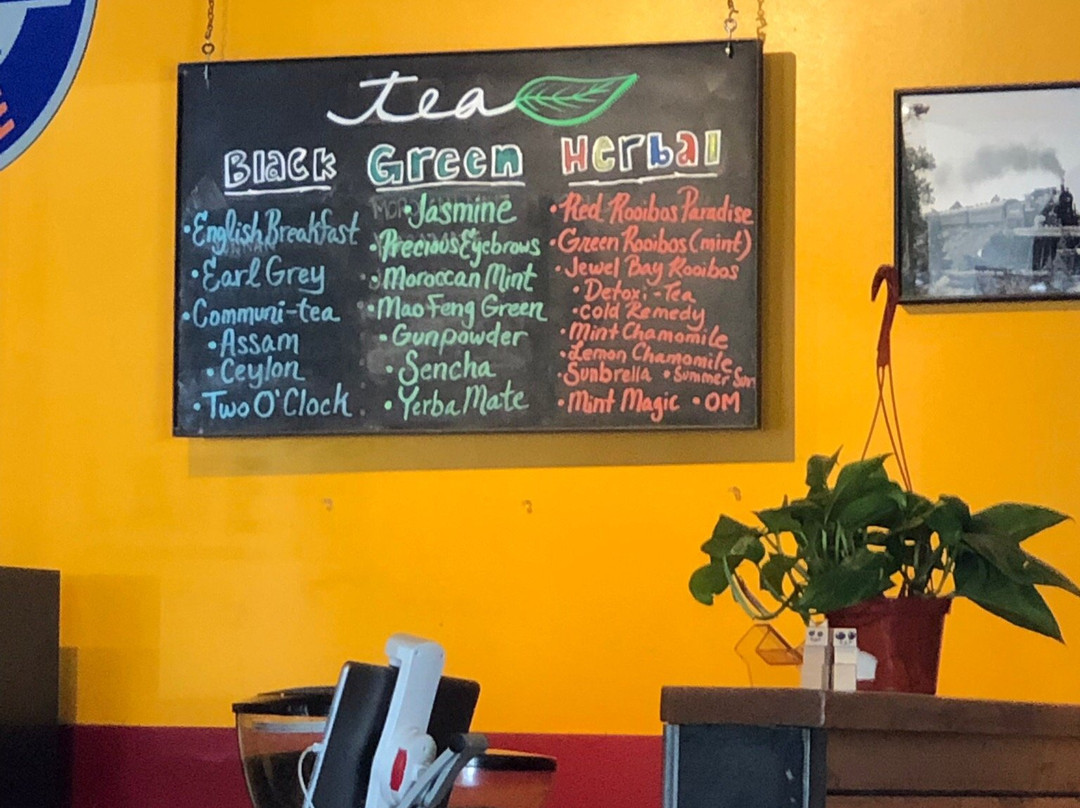 tea
Black
•English Breakfast
•Earl Grey
•Communi-tea
•Assam
•Ceylon
•Two O'Clock
Green
•Jasmine
•Precious Eyebrows
•Moroccan Mint
•Mao Feng Green
•Gunpowder
•Sencha
•Yerba Mate
Herbal
•Red Rooibos Paradise
•Green Rooibos (mint)
•Jewel Bay Rooibos
•Detoxi-Tea
•Cold Remedy
•Mint Chamomile
•Lemon Chamomile
•Sunbrella •Summer Sun
•Mint Magic •OM